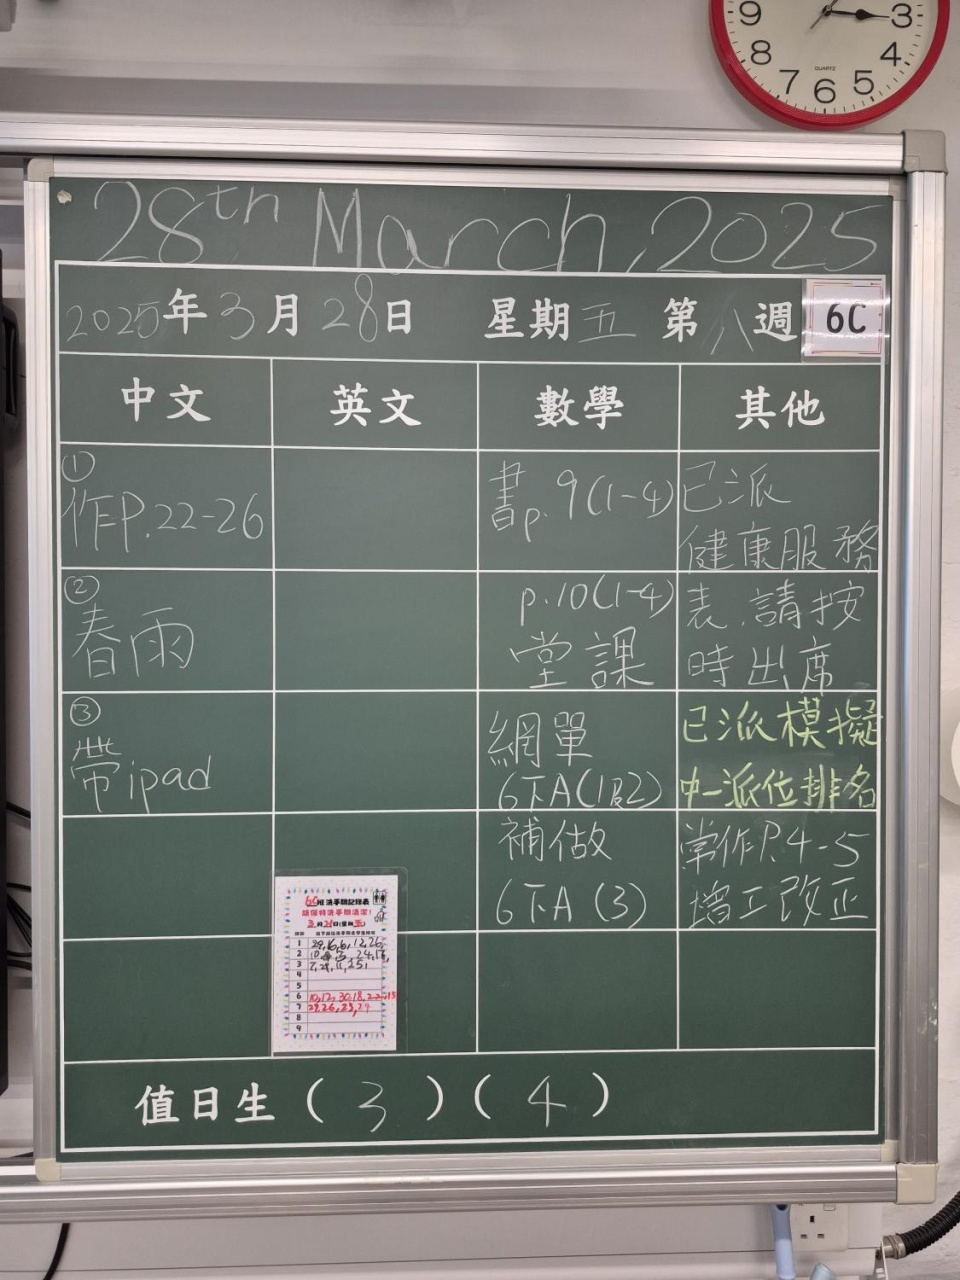 9
3
8
4
7
6
5
QUARTZ
28th March, 2025
2025年3月28日 星期五 第八週
6C
中文 英文 數學 其他
①
作P.22-26
②
春雨
③
帶ipad
書p.9(1-4)
p.10(1-4)
堂課
網單
6下A(1及2)
補做
6下A(3)
已派
健康服務
表,請按
時出席
已派模擬
中一派位排名
常作P.4-5
增工改正
6C班洗手間記錄表
3月28日(星期五)
1 29,16,6,12,26,
2
3
4
5
6 10,12,30,18,22,15
7 29,26,25,29
8
9
值日生(3)(4)